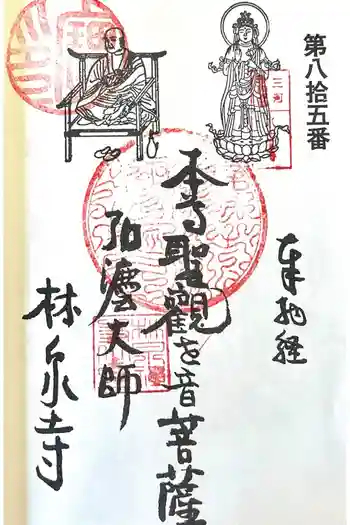 第八拾五番
奉納経
本尊聖観世音菩薩
弘法大師
林泉寺
三河